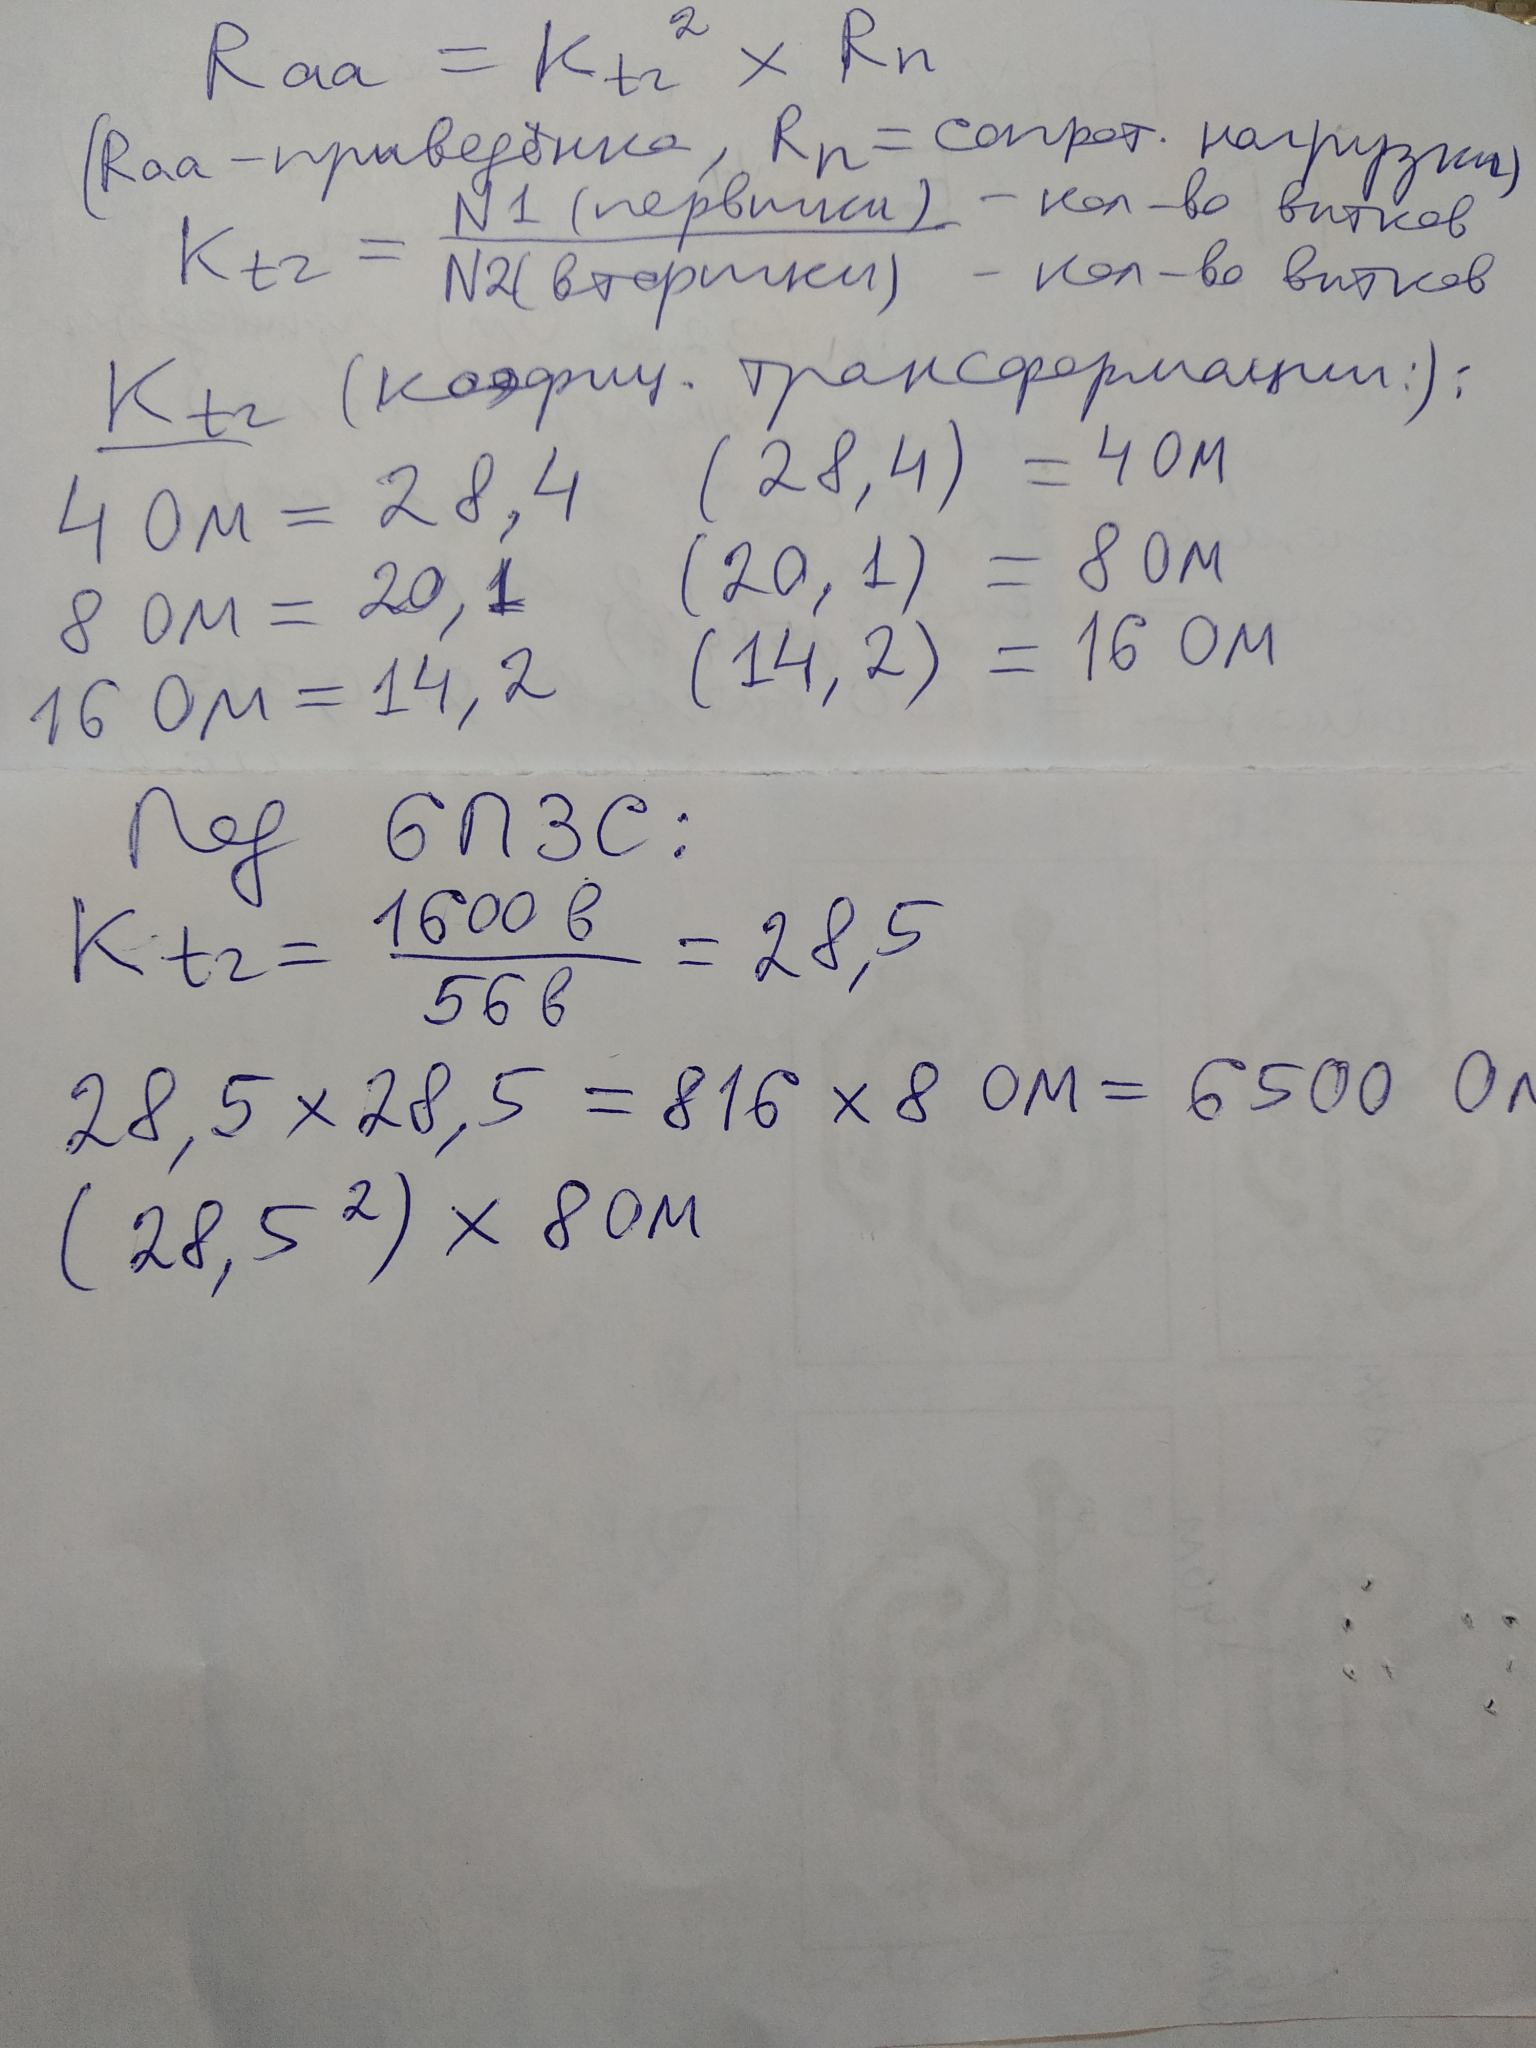 Raa = Ktr² × Rn
(Raa – приведёнка, Rn = сопрот. нагрузки)
Ktr = N1 (первички) – кол-во витков
N2 (вторички) – кол-во витков
Ktr (коэфиц. трансформации:):
4 Ом = 28,4 (28,4) = 4 Ом
8 Ом = 20,1 (20,1) = 8 Ом
16 Ом = 14,2 (14,2) = 16 Ом
Под 6П3С:
Ktr = 1600 в / 56 в = 28,5
28,5 × 28,5 = 816 × 8 Ом = 6500 Ом
(28,5²) × 8 Ом